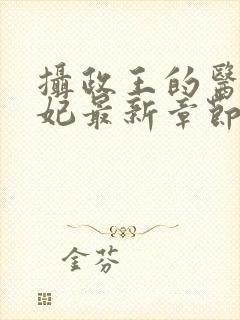 攝政王的醫
妃最新章節
金芬